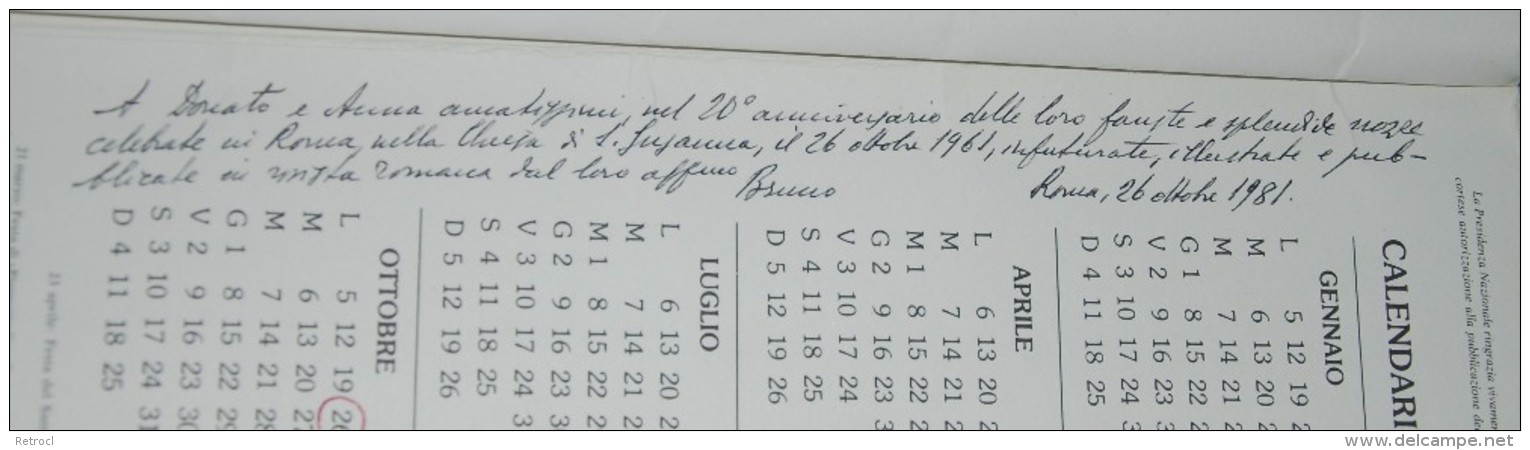 A Donato e Anna amatissimi, nel 20° anniversario delle loro fauste e splendide nozze
celebrate in Roma, nella Chiesa di S. Susanna, il 26 ottobre 1961, infuturate, illustrate e pub-
blicate in vista romana dal loro aff.mo Bruno Roma, 26 ottobre 1981.
La Presidenza Nazionale ringrazia
cortese autorizzazione alla pubblicazione
CALENDARI
GENNAIO
L 5 12 19 2
M 6 13 20 2
M 7 14 21 2
G 1 8 15 22 2
V 2 9 16 23 3
S 3 10 17 24 3
D 4 11 18 25
APRILE
L 6 13 20 2
M 7 14 21 2
M 1 8 15 22 2
G 2 9 16 23 3
V 3 10 17 24
S 4 11 18 25
D 5 12 19 26
LUGLIO
L 6 13 20 2
M 7 14 21 2
M 1 8 15 22 2
G 2 9 16 23 3
V 3 10 17 24 3
S 4 11 18 25
D 5 12 19 26
OTTOBRE
L 5 12 19 26
M 6 13 20 27
M 7 14 21 28
G 1 8 15 22 29
V 2 9 16 23 30
S 3 10 17 24 31
D 4 11 18 25
23 aprile: Festa del
21 marzo: Festa di
Retrocl
www.delcampe.net